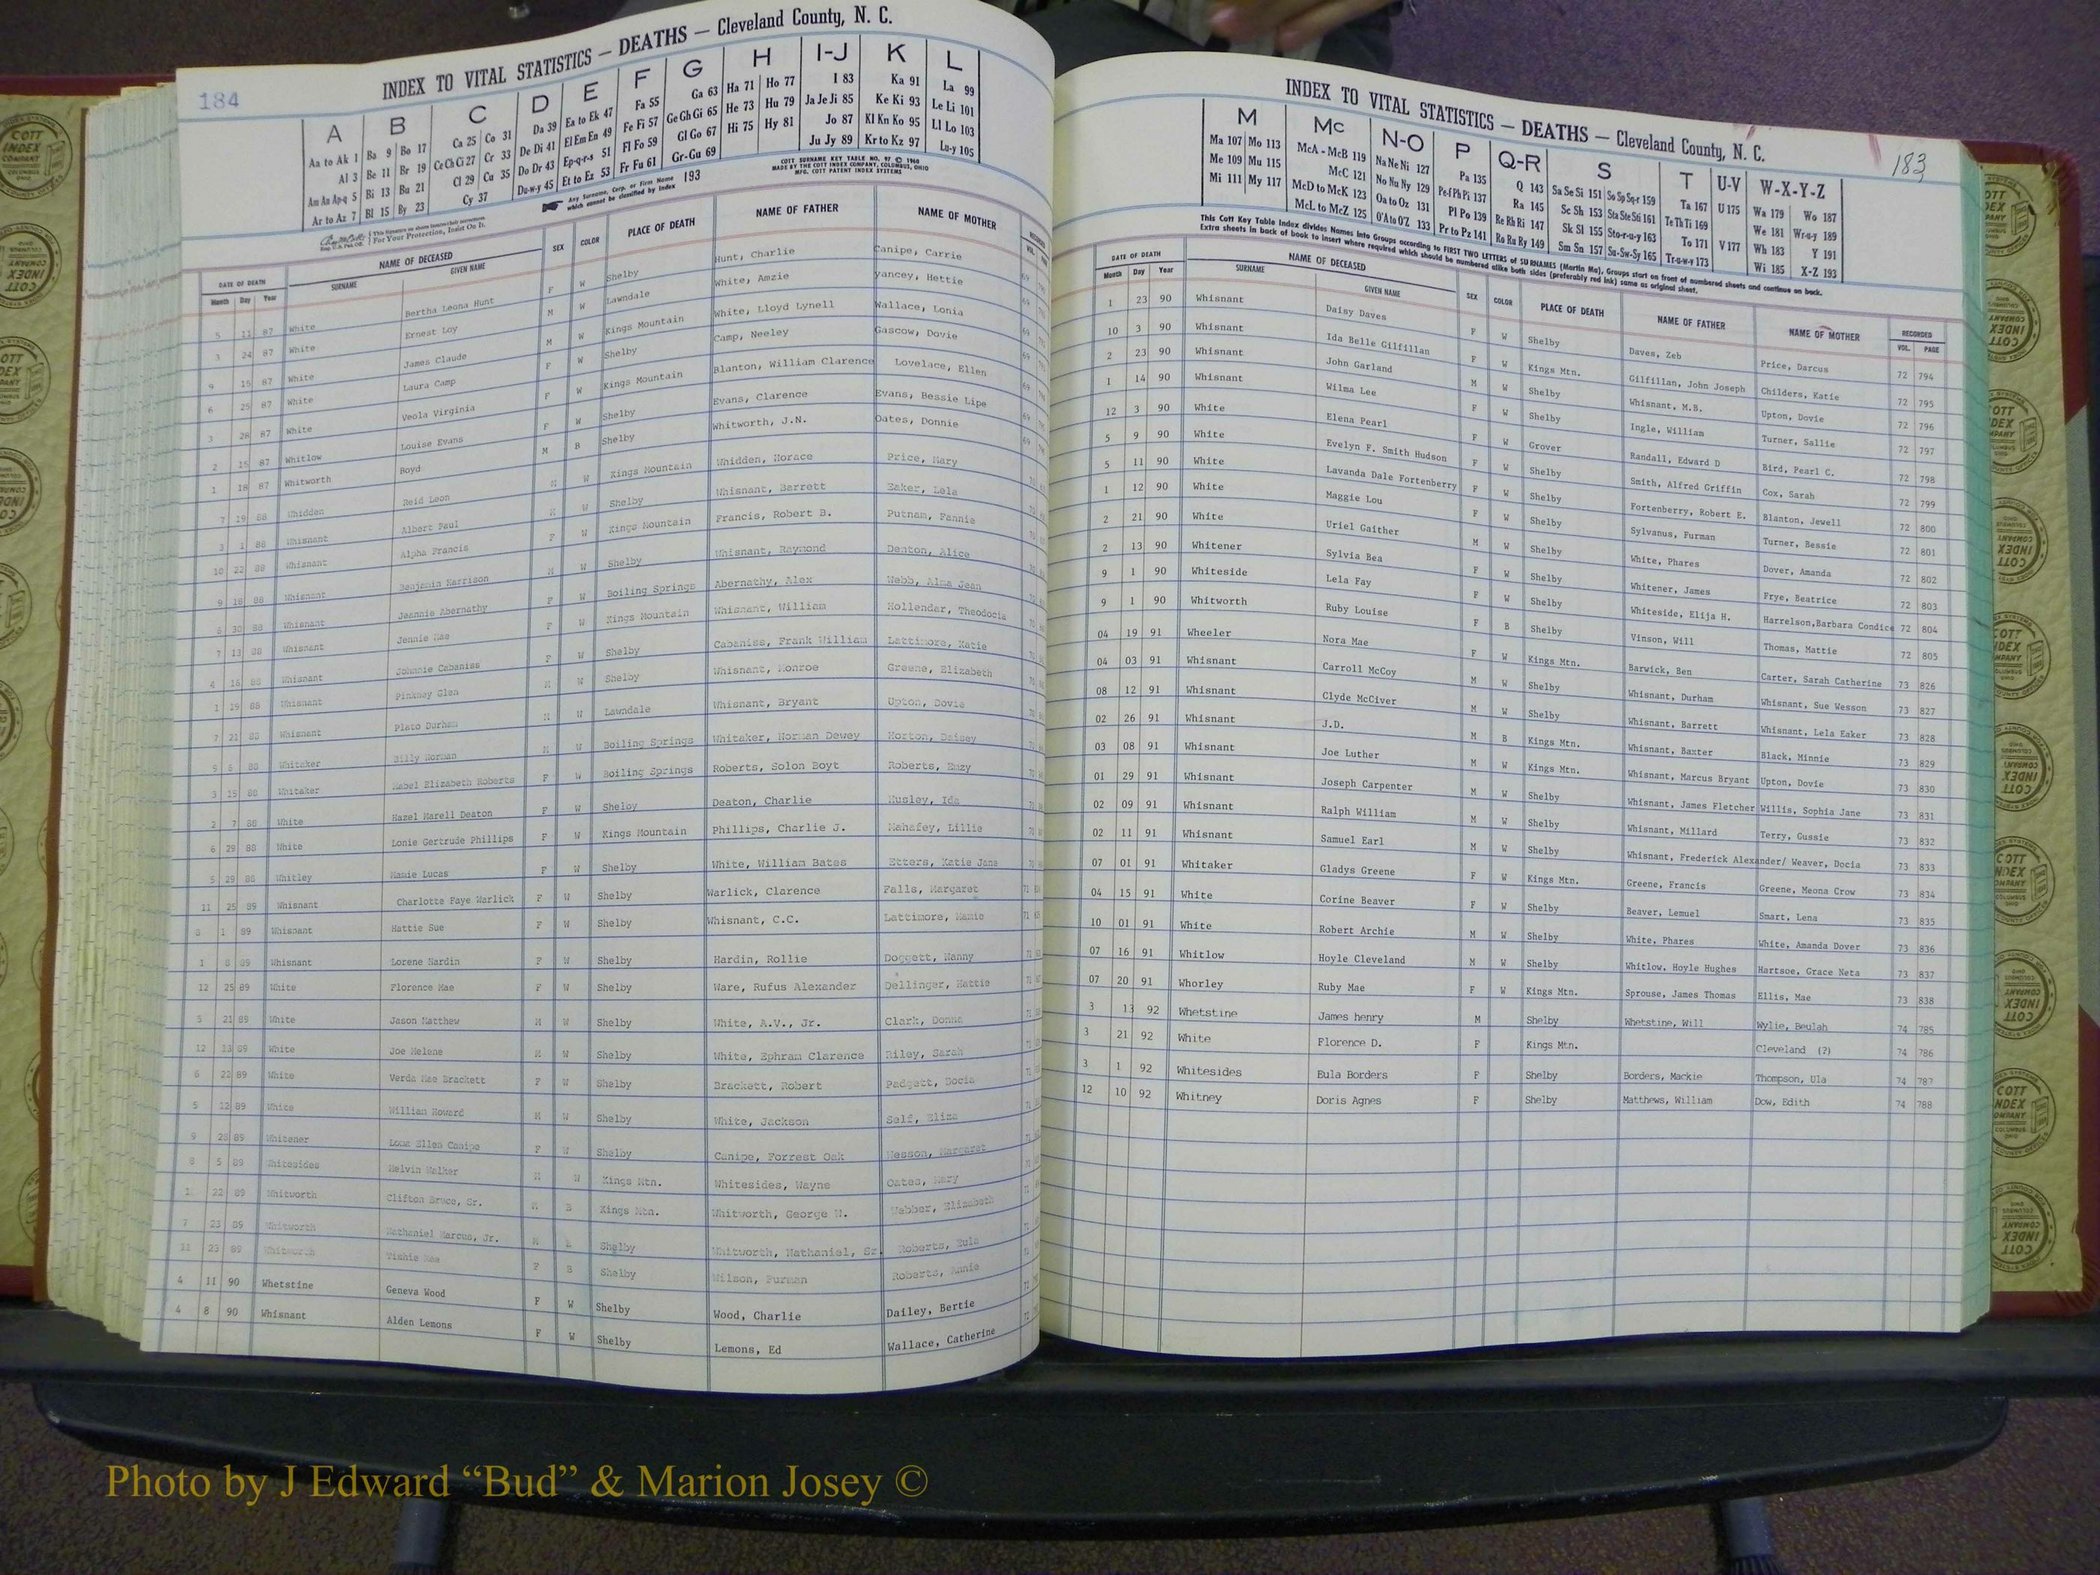 184
INDEX TO VITAL STATISTICS — DEATHS — Cleveland County, N. C.
A B C D E F G H I-J K L
Aa to Ak 1 Ba 9 Bo 17 Ca 25 Co 31 Da 39 Ea to Ek 47 Fa 55 Ga 63 Ha 71 Ho 77 I 83 Ka 91 La 99
Al 3 Be 11 Br 19 Ce Ch Ci 27 Cr 33 De Di 41 El Em En 49 Fe Fi 57 Ge Gh Gi 65 He 73 Hu 79 Ja Je Ji 85 Ke Ki 93 Le Li 101
Am An Ap-q 5 Bi 13 Bu 21 Cl 29 Cu 35 Do Dr 43 Ep-q-r-s 51 Fl Fo 59 Gl Go 67 Hi 75 Hy 81 Jo 87 Kl Kn Ko 95 Ll Lo 103
Ar to Az 7 Bl 15 By 23 Cy 37 Du-w-y 45 Et to Ez 53 Fr Fu 61 Gr-Gu 69 Ju Jy 89 Kr to Kz 97 Lu-y 105
Any Surname, Corp. or Firm Name which cannot be classified by Index 193
COTT SURNAME KEY TABLE NO. 97 © 1960
MADE BY THE COTT INDEX COMPANY, COLUMBUS, OHIO
MFG. COTT PATENT INDEX SYSTEMS
For Your Protection, Insist On It.
DATE OF DEATH NAME OF DECEASED SEX COLOR PLACE OF DEATH NAME OF FATHER NAME OF MOTHER RECORDED
Month Day Year SURNAME GIVEN NAME VOL.
5 11 87 White Bertha Leona Hunt F W Shelby Hunt, Charlie Canipe, Carrie 69
3 24 87 White Ernest Loy M W Lawndale White, Amzie Yancey, Hettie 69
9 15 87 White James Claude M W Kings Mountain White, Lloyd Lynell Wallace, Lonia 69
6 25 87 White Laura Camp F W Shelby Camp, Neeley Gascow, Dovie 69
3 28 87 White Veola Virginia F W Kings Mountain Blanton, William Clarence Lovelace, Ellen 69
2 15 87 Whitlow Louise Evans F W Shelby Evans, Clarence Evans, Bessie Lipe 69
1 18 87 Whitworth Boyd M B Shelby Whitworth, J.N. Oates, Donnie 69
7 19 88 Whidden Reid Leon M W Kings Mountain Whidden, Horace Price, Mary
3 1 88 Whisnant Albert Paul M W Shelby Whisnant, Barrett Eaker, Lela
10 22 88 Whisnant Alpha Francis F W Kings Mountain Francis, Robert B. Putnam, Fannie
9 18 88 Whisnant Benjamin Harrison M W Shelby Whisnant, Raymond Denton, Alice
6 30 88 Whisnant Jeannie Abernathy F W Boiling Springs Abernathy, Alex Webb, Alma Jean
7 13 88 Whisnant Jennie Mae F W Kings Mountain Whisnant, William Hollendar, Theodocia
4 16 88 Whisnant Johnnie Cabaniss F W Shelby Cabaniss, Frank William Lattimore, Katie
1 19 88 Whisnant Pinkney Glen M W Shelby Whisnant, Monroe Greene, Elizabeth
7 21 88 Whisnant Plato Durham M W Lawndale Whisnant, Bryant Upton, Dovie
9 6 88 Whitaker Billy Norman M W Boiling Springs Whitaker, Norman Dewey Horton, Daisey
3 15 88 Whitaker Mabel Elizabeth Roberts F W Boiling Springs Roberts, Solon Boyt Roberts, Emzy
2 7 88 White Hazel Marell Deaton F W Shelby Deaton, Charlie Husley, Ida
6 29 88 White Lonie Gertrude Phillips F W Kings Mountain Phillips, Charlie J. Mahafey, Lillie
5 29 88 Whitley Mamie Lucas F W Shelby White, William Bates Etters, Katie Jane
11 25 89 Whisnant Charlotte Faye Warlick F W Shelby Warlick, Clarence Falls, Margaret 71
8 1 89 Whisnant Hattie Sue F W Shelby Whisnant, C.C. Lattimore, Mamie 71
1 8 89 Whisnant Lorene Hardin F W Shelby Hardin, Rollie Doggett, Nanny
12 25 89 White Florence Mae F W Shelby Ware, Rufus Alexander Dellinger, Hattie
5 21 89 White Jason Matthew M W Shelby White, A.V., Jr. Clark, Donna
12 13 89 White Joe Melene M W Shelby White, Ephram Clarence Riley, Sarah
6 22 89 White Verda Mae Brackett F W Shelby Brackett, Robert Padgett, Docia
5 12 89 White William Howard M W Shelby White, Jackson Self, Eliza
9 28 89 Whitener Loma Ellen Canipe F W Shelby Canipe, Forrest Oak Wesson, Margaret
8 5 89 Whitesides Melvin Walker M W Kings Mtn. Whitesides, Wayne Oates, Mary
22 89 Whitworth Clifton Bruce, Sr. M B Kings Mtn. Whitworth, George W. Webber, Elizabeth
7 23 89 Whitworth Nathaniel Marcus, Jr. M B Shelby Whitworth, Nathaniel, Sr. Roberts, Eula
11 23 89 Whitworth Tishie Mae F B Shelby Wilson, Furman Roberts, Annie
4 11 90 Whetstine Geneva Wood F W Shelby Wood, Charlie Dailey, Bertie
4 8 90 Whisnant Alden Lemons F W Shelby Lemons, Ed Wallace, Catherine
183
INDEX TO VITAL STATISTICS — DEATHS — Cleveland County, N. C.
M Mc N-O P Q-R S T U-V W-X-Y-Z
Ma 107 Mo 113 McA - McB 119 Na Ne Ni 127 Pa 135 Q 143 Sa Se Si 151 So Sp Sq-r 159 Ta 167 U 175 Wa 179 Wo 187
Me 109 Mu 115 McC 121 No Nu Ny 129 Pe-f Ph Pi 137 Ra 145 Sc Sh 153 Sta Ste Sti 161 Te Th Ti 169 We 181 Wr-u-y 189
Mi 111 My 117 McD to McK 123 Oa to Oz 131 Pl Po 139 Re Rh Ri 147 Sk Sl 155 Sto-r-u-y 163 To 171 V 177 Wh 183 Y 191
McL to McZ 125 O'A to O'Z 133 Pr to Pz 141 Ro Ru Ry 149 Sm Sn 157 Su-Sw-Sy 165 Tr-u-w-y 173 Wi 185 X-Z 193
This Cott Key Table Index divides Names into Groups according to FIRST TWO LETTERS of SURNAMES (Martin Ma), Groups start on front of numbered sheets and continue on back.
Extra sheets in back of book to insert where required which should be numbered alike both sides (preferably red ink) same as original sheet.
DATE OF DEATH NAME OF DECEASED SEX COLOR PLACE OF DEATH NAME OF FATHER NAME OF MOTHER RECORDED
Month Day Year SURNAME GIVEN NAME VOL. PAGE
1 23 90 Whisnant Daisy Daves F W Shelby Daves, Zeb Price, Darcus 72 794
10 3 90 Whisnant Ida Belle Gilfillan F W Kings Mtn. Gilfillan, John Joseph Childers, Katie 72 795
2 23 90 Whisnant John Garland M W Shelby Whisnant, M.B. Upton, Dovie 72 796
1 14 90 Whisnant Wilma Lee F W Shelby Ingle, William Turner, Sallie 72 797
12 3 90 White Elena Pearl F W Grover Randall, Edward D Bird, Pearl C. 72 798
5 9 90 White Evelyn F. Smith Hudson F W Shelby Smith, Alfred Griffin Cox, Sarah 72 799
5 11 90 White Lavanda Dale Fortenberry F W Shelby Fortenberry, Robert E. Blanton, Jewell 72 800
1 12 90 White Maggie Lou F W Shelby Sylvanus, Furman Turner, Bessie 72 801
2 21 90 White Uriel Gaither M W Shelby White, Phares Dover, Amanda 72 802
2 13 90 Whitener Sylvia Bea F W Shelby Whitener, James Frye, Beatrice 72 803
9 1 90 Whiteside Lela Fay F W Shelby Whiteside, Elija H. Harrelson,Barbara Condice 72 804
9 1 90 Whitworth Ruby Louise F B Shelby Vinson, Will Thomas, Mattie 72 805
04 19 91 Wheeler Nora Mae F W Kings Mtn. Barwick, Ben Carter, Sarah Catherine 73 826
04 03 91 Whisnant Carroll McCoy M W Shelby Whisnant, Durham Whisnant, Sue Wesson 73 827
08 12 91 Whisnant Clyde McCiver M W Shelby Whisnant, Barrett Whisnant, Lela Eaker 73 828
02 26 91 Whisnant J.D. M B Kings Mtn. Whisnant, Baxter Black, Minnie 73 829
03 08 91 Whisnant Joe Luther M W Kings Mtn. Whisnant, Marcus Bryant Upton, Dovie 73 830
01 29 91 Whisnant Joseph Carpenter M W Shelby Whisnant, James Fletcher Willis, Sophia Jane 73 831
02 09 91 Whisnant Ralph William M W Shelby Whisnant, Millard Terry, Gussie 73 832
02 11 91 Whisnant Samuel Earl M W Shelby Whisnant, Frederick Alexander/ Weaver, Docia 73 833
07 01 91 Whitaker Gladys Greene F W Kings Mtn. Greene, Francis Greene, Meona Crow 73 834
04 15 91 White Corine Beaver F W Shelby Beaver, Lemuel Smart, Lena 73 835
10 01 91 White Robert Archie M W Shelby White, Phares White, Amanda Dover 73 836
07 16 91 Whitlow Hoyle Cleveland M W Shelby Whitlow, Hoyle Hughes Hartsoe, Grace Neta 73 837
07 20 91 Whorley Ruby Mae F W Kings Mtn. Sprouse, James Thomas Ellis, Mae 73 838
3 13 92 Whetstine James henry M Shelby Whetstine, Will Wylie, Beulah 74 785
3 21 92 White Florence D. F Kings Mtn. Cleveland (?) 74 786
3 1 92 Whitesides Eula Borders F Shelby Borders, Mackie Thompson, Ula 74 787
12 10 92 Whitney Doris Agnes F Shelby Matthews, William Dow, Edith 74 788
Photo by J Edward “Bud” & Marion Josey ©